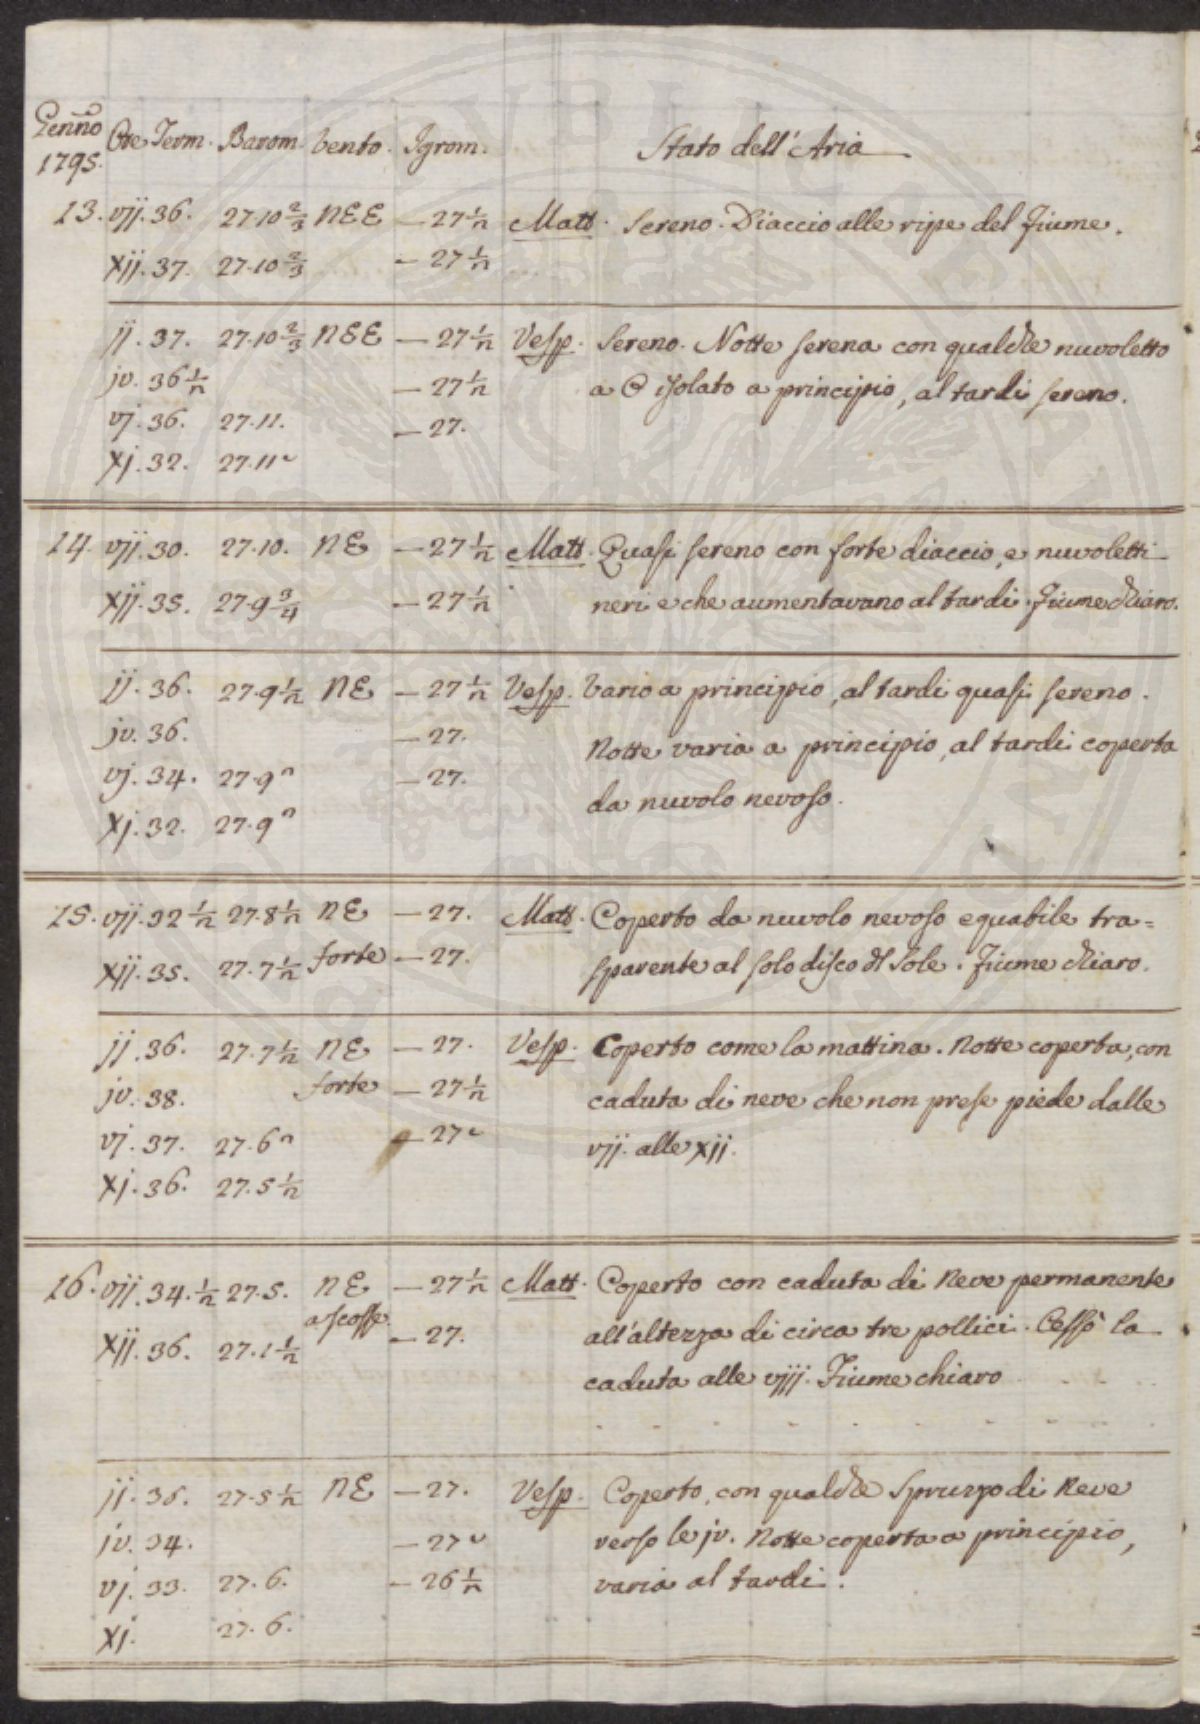 Genno 1795. Ore Term. Barom. Vento. Igrom. Stato dell'Aria
13. vij. 36. 27.10 2/3 NEE — 27 1/2 Matt. Sereno. Diaccio alle ripe del Fiume.
xij. 37. 27.10 2/3 — 27 1/2
ij. 37. 27.10 2/3 NEE — 27 1/2 Vesp. Sereno. Notte serena con qualche nuvoletto
iv. 36 1/2 — 27 1/2 a isolato a principio, al tardi sereno.
vj. 36. 27.11. — 27.
xj. 32. 27.11
14. vij. 30. 27.10. NE — 27 1/2 Matt. Quasi sereno con forte diaccio, e nuvoletti
xij. 35. 27.9 3/4 — 27 1/2 neri e che aumentavano al tardi. Fiume chiaro.
ij. 36. 27.9 1/2 NE — 27 1/2 Vesp. Vario a principio, al tardi quasi sereno.
iv. 36. — 27. Notte varia a principio, al tardi coperta
vj. 34. 27.9 — 27. da nuvolo nevoso.
xj. 32. 27.9
15. vij. 32 1/2 27.8 1/2 NE — 27. Matt. Coperto da nuvolo nevoso equabile tra=
xij. 35. 27.7 1/2 forte — 27. sparente al solo disco dl Sole. Fiume chiaro.
ij. 36. 27.7 1/2 NE — 27. Vesp. Coperto come la mattina. Notte coperta, con
iv. 38. forte — 27 1/2 caduta di neve che non prese piede dalle
vj. 37. 27.6 — 27 vij. alle xij.
xj. 36. 27.5 1/2
16. vij. 34. 1/2 27.5. NE — 27 1/2 Matt. Coperto con caduta di Neve permanente
xij. 36. 27.1 1/2 a scosse — 27. all'altezza di circa tre pollici. Cessò la
caduta alle viij. Fiume chiaro
ij. 35. 27.5 1/2 NE — 27. Vesp. Coperto, con qualche spruzzo di Neve
iv. 34. — 27 verso le iv. Notte coperta a principio,
vj. 33. 27.6. — 26 1/2 varia al tardi.
xj. 27.6.